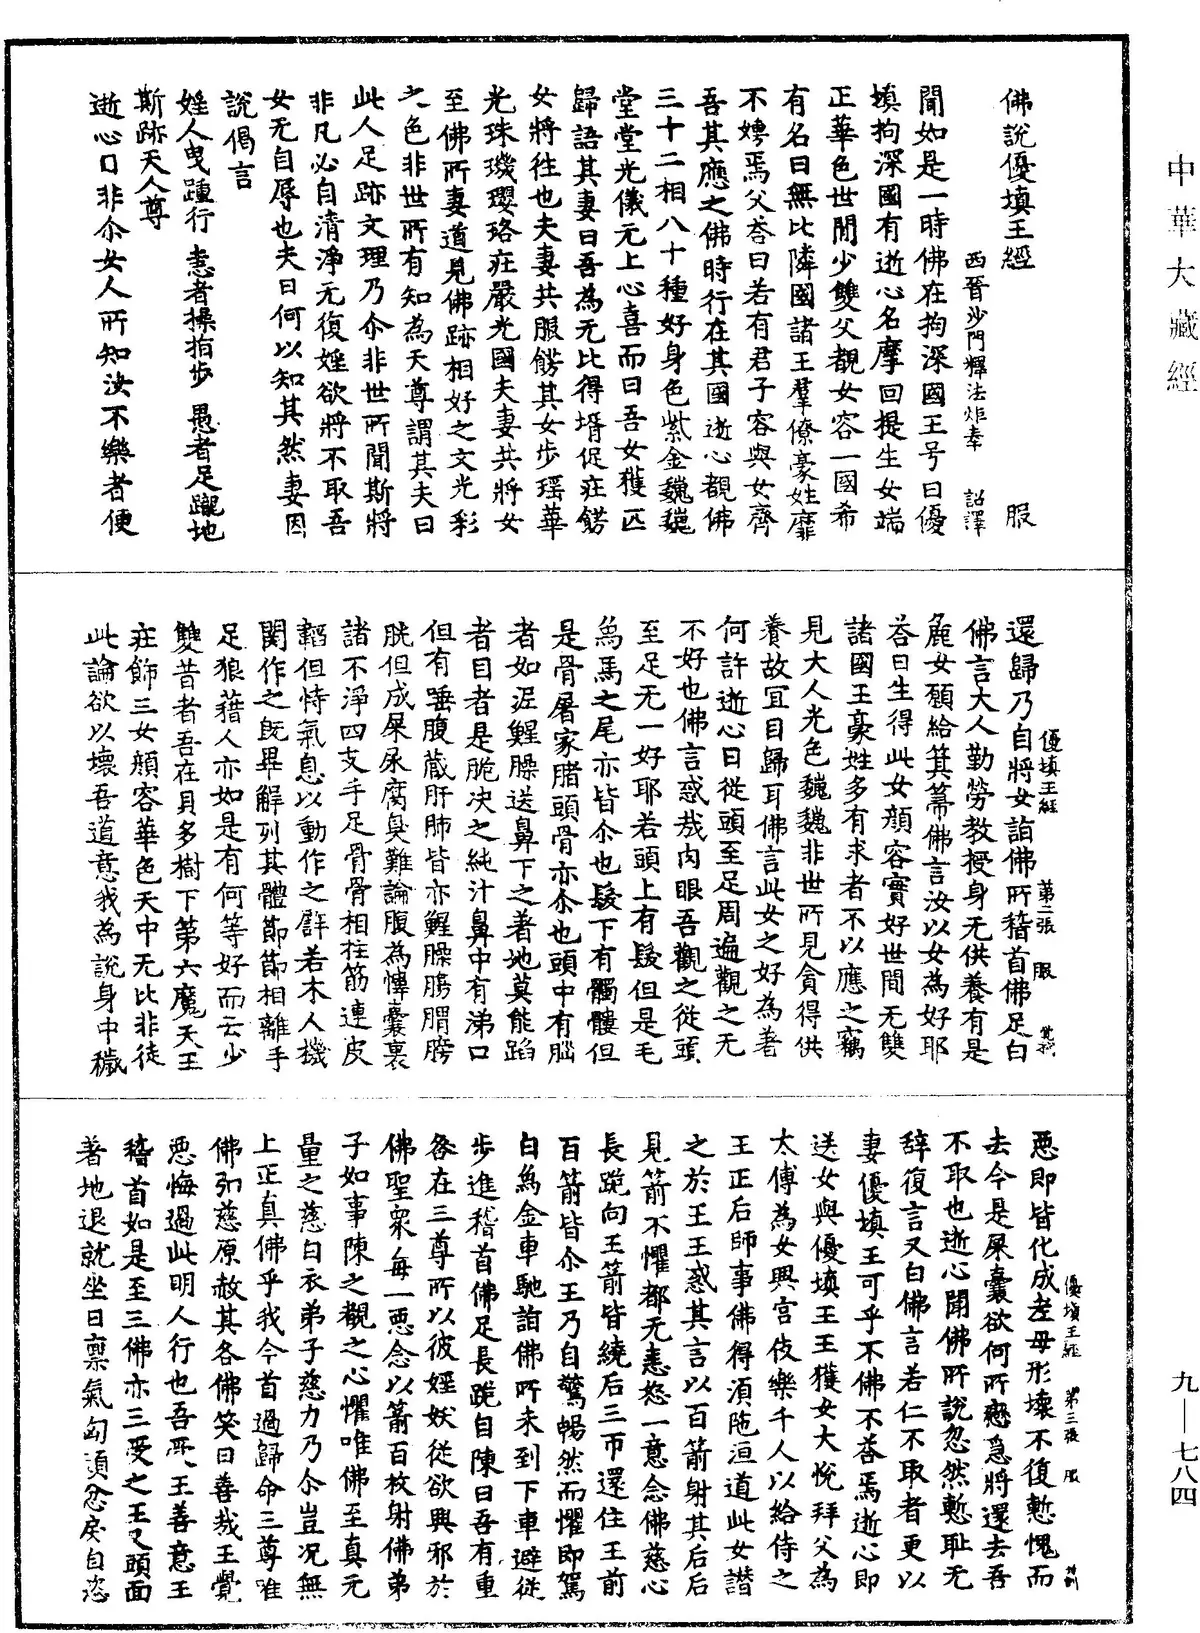 中華大藏經
佛說優填王經　服
西晉沙門釋法炬奉　詔譯
聞如是一時佛在拘深國王号曰優
填拘深國有逝心名摩回提生女端
正華色世間少雙父覩女容一國希
有名曰無比隣國諸王羣僚豪姓靡
不娉焉父荅曰若有君子容與女齊
吾其應之佛時行在其國逝心覩佛
三十二相八十種好身色紫金巍巍
堂堂光儀无上心喜而曰吾女獲匹
歸語其妻曰吾為无比得壻促莊餝
女將往也夫妻共服餝其女步瑶華
光珠璣瓔珞莊嚴光國夫妻共將女
至佛所妻道見佛跡相好之文光彩
之色非世所有知為天尊謂其夫曰
此人足跡文理乃尒非世所聞斯將
非凡必自清淨无復婬欲將不取吾
女无自辱也夫曰何以知其然妻因
說偈言
婬人曳踵行　恚者操指步　愚者足蹴地
斯跡天人尊
逝心曰非尒女人所知汝不樂者便
還歸乃自將女詣佛所稽首佛足白
佛言大人勤勞教授身无供養有是
麁女願給箕箒佛言汝以女為好耶
荅曰生得此女顏容實好世間无雙
諸國王豪姓多有求者不以應之竊
見大人光色巍巍非世所見貪得供
養故冝自歸耳佛言此女之好為著
何許逝心曰從頭至足周遍觀之无
不好也佛言惑哉肉眼吾觀之從頭
至足无一好耶若頭上有髮但是毛
鳥馬之尾亦皆尒也髮下有髑髏但
是骨屠家賭頭骨亦尒也頭中有腦
者如泥鯹臊送鼻下之著地莫能蹈
者目者是脆決之純汁鼻中有涕口
但有唾腹藏肝肺皆亦鯹臊膓胃膀
胱但成屎尿腐臭難論腹為愽囊裹
諸不淨四支手足骨骨相拄筋連皮
韜但恃氣息以動作之辟若木人機
関作之旣畢解列其體節節相離手
足狼藉人亦如是有何等好而云少
雙昔者吾在貝多樹下第六魔天王
莊飾三女顏容華色天中无比非徒
此論欲以壞吾道意我為說身中穢
優填王經　第二張　服
惡即皆化成老母形壞不復慙愧而
去今是屎囊欲何所戀急將還去吾
不取也逝心聞佛所說忽然慙耻无
辞復言又白佛言若仁不取者更以
妻優填王可乎不佛不荅焉逝心即
送女與優填王王獲女大悅拜父為
太傅為女興宮伎樂千人以給侍之
王正后師事佛得須陁洹道此女譖
之於王王惑其言以百箭射其后后
見箭不懼都无恚怒一意念佛慈心
長跪向王箭皆繞后三帀還住王前
百箭皆尒王乃自驚惕然而懼即駕
白鳥金車馳詣佛所未到下車避從
步進稽首佛足長跪自陳曰吾有重
咎在三尊所以彼婬妖從欲興邪於
佛聖衆每一惡念以箭百枚射佛弟
子如事陳之覩之心懼唯佛至真无
量之慈白衣弟子慈力乃尒豈况無
上正真佛乎我今首過歸命三尊唯
佛弘慈原赦其咎佛笑曰善哉王覺
惡悔過此明人行也吾受王善意王
稽首如是至三佛亦三受之王又頭面
著地退就坐曰禀氣匈頑忿戾自恣
優填王經　第三張　服
九—七八四